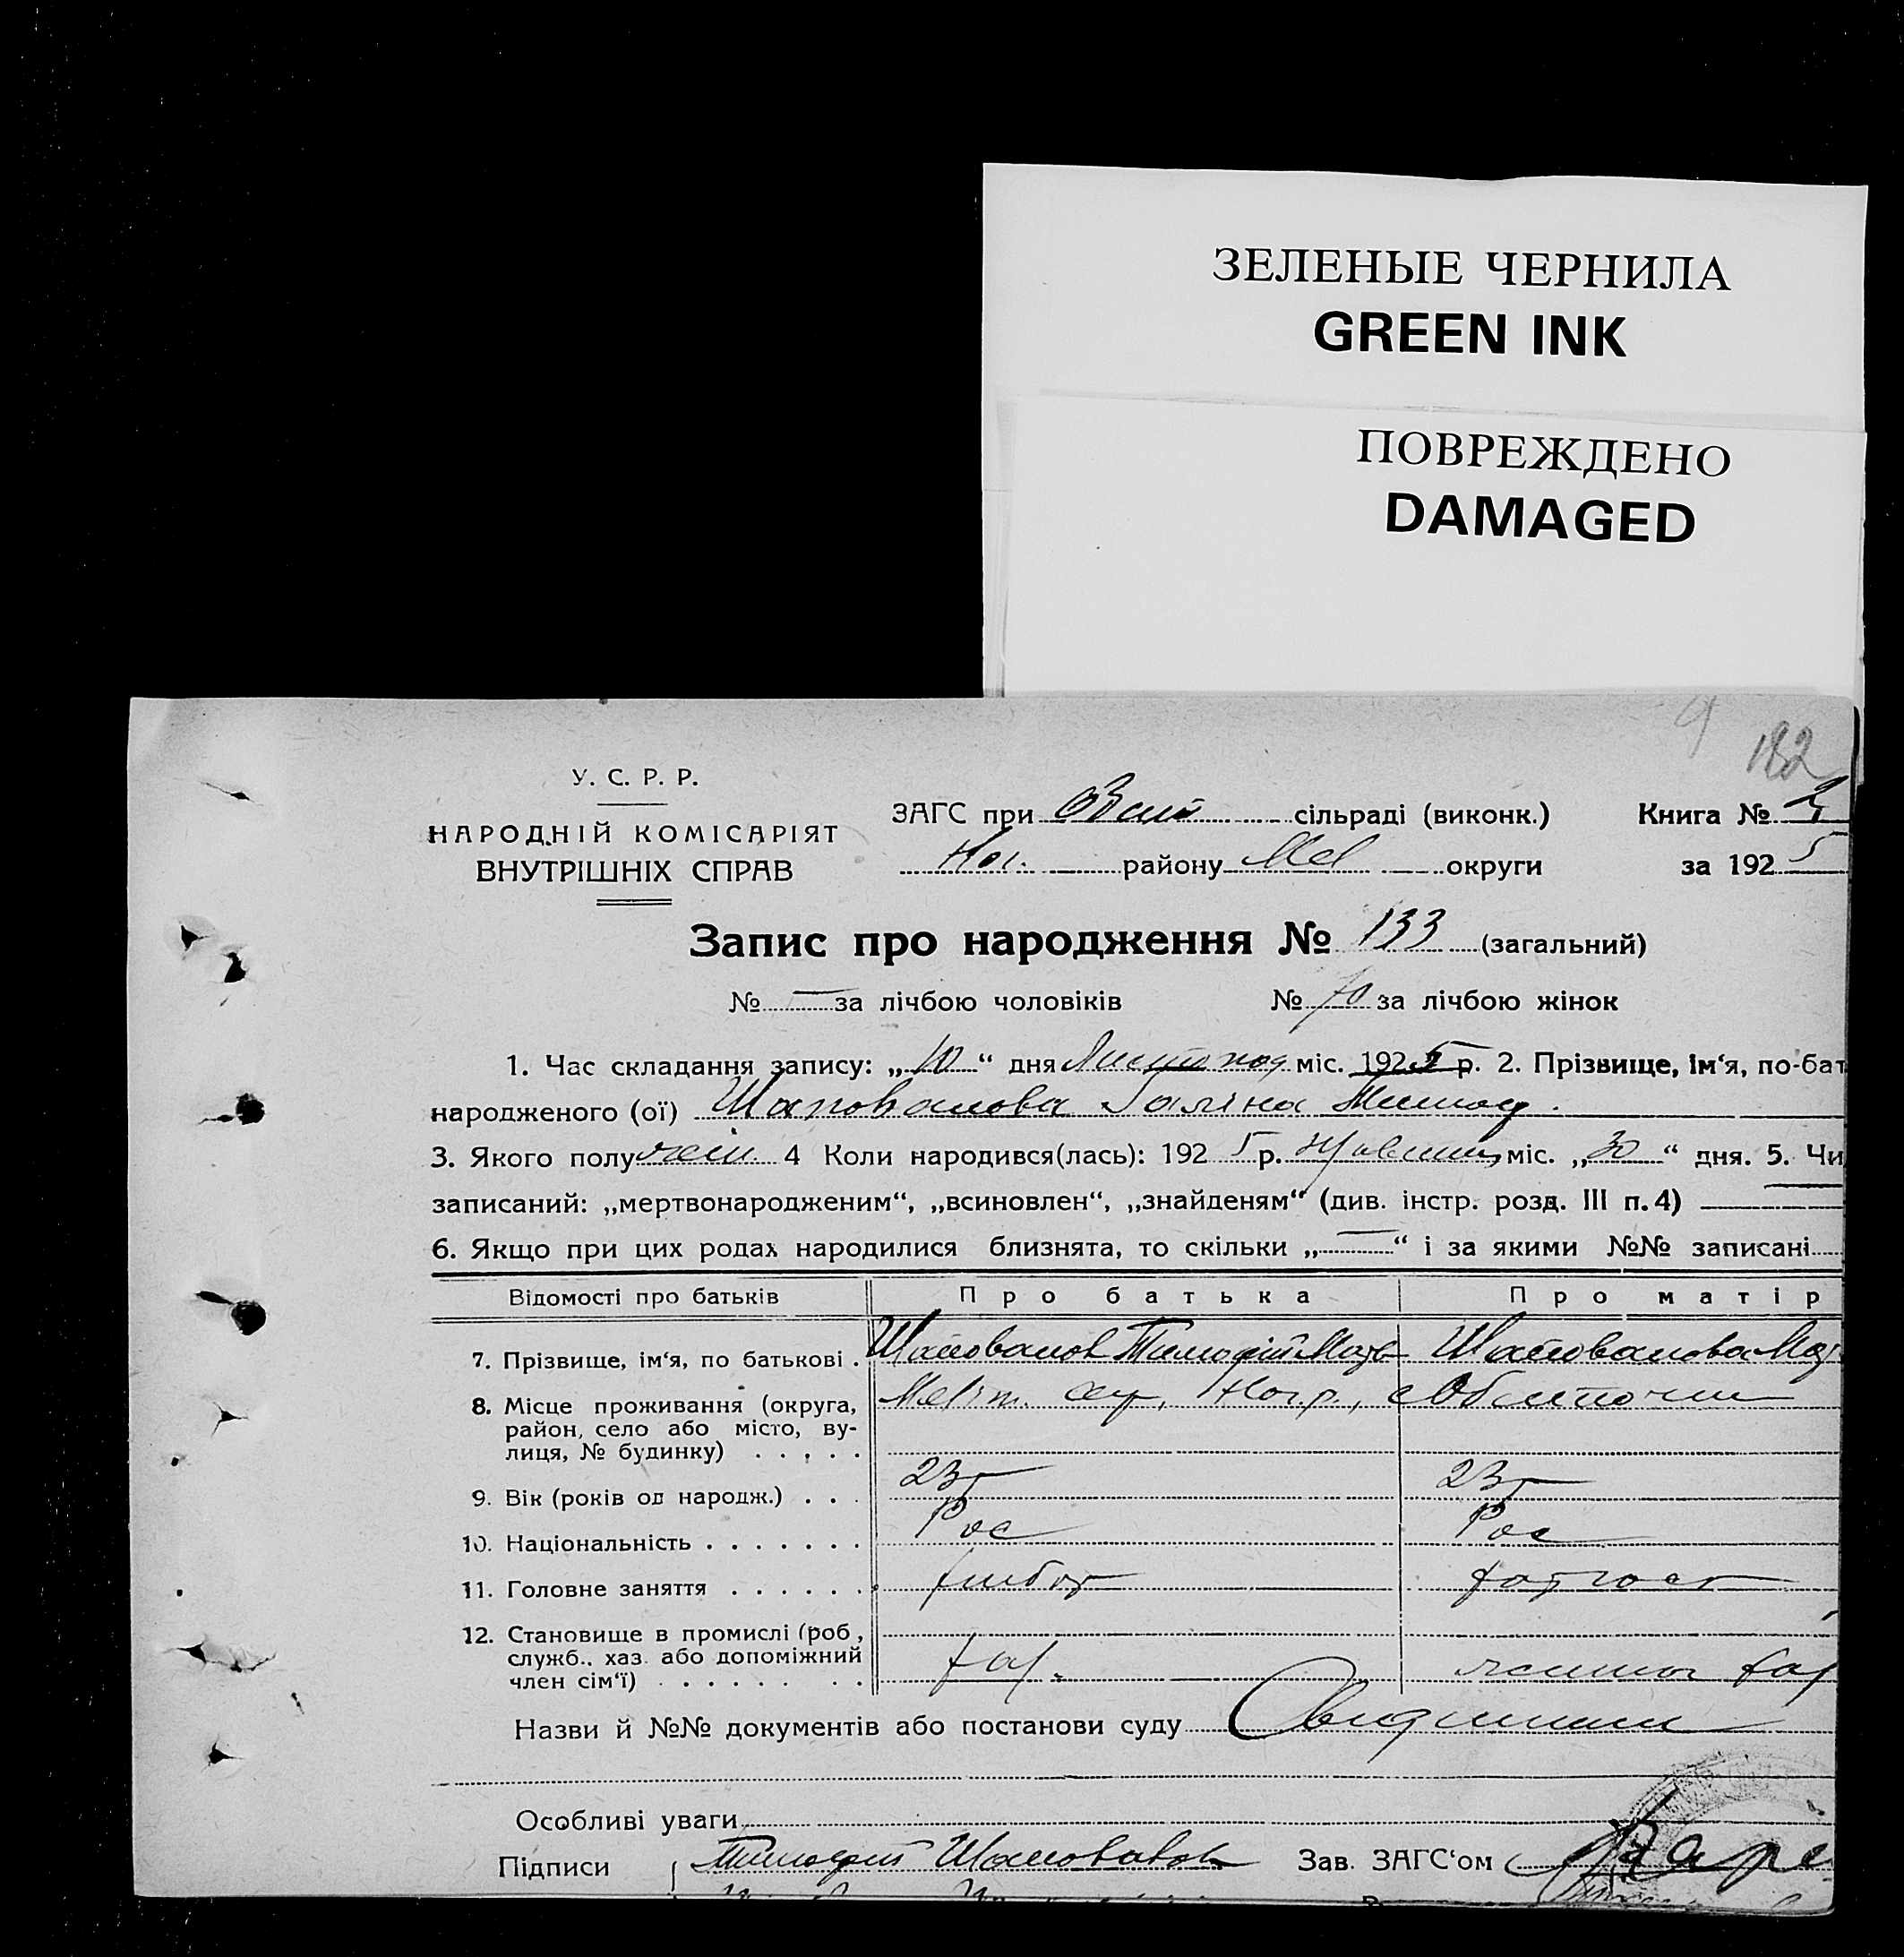 ЗЕЛЕНЫЕ ЧЕРНИЛА
GREEN INK
ПОВРЕЖДЕНО
DAMAGED
182
У. С. Р. Р.
НАРОДНІЙ КОМІСАРІЯТ
ВНУТРІШНІХ СПРАВ
ЗАГС при сільраді (виконк.) Книга № 2
Ног. району Мел округи за 1925
Запис про народження № 133 (загальний)
№ — за лічбою чоловіків № 70 за лічбою жінок
1. Час складання запису: „10“ дня Листопод міс. 1925 р. 2. Прізвище, ім‘я, по-бат
народженого (ої) Шаповалова Галіна Тимоф.
3. Якого полу жін. 4 Коли народився(лась): 1925 р. міс. „30“ дня. 5. Чи
записаний: „мертвонародженим“, „всиновлен“, „знайденям“ (див. інстр. розд. III п. 4) —
6. Якщо при цих родах народилися близнята, то скільки „—“ і за якими №№ записані
Відомості про батьків Про батька Про матір
7. Прізвище, ім‘я, по батькові . Шаповалов Тимофій Шаповалова
8. Місце проживання (округа, Меліт. окр, Ног.р., с Обиточне
район, село або місто, ву-
лиця, № будинку) . . . . .
9. Вік (років од народж.) . . . 23 23
10. Національність . . . . . . . Рос Рос
11. Головне заняття . . . . . . хлібор
12. Становище в промислі (роб,
служб.. хаз. або допоміжний
член сім‘ї) . . . . . . . . хаз.
Назви й №№ документів або постанови суду
Особливі уваги
Підписи Тимофей Шаповалов Зав. ЗАГС‘ом